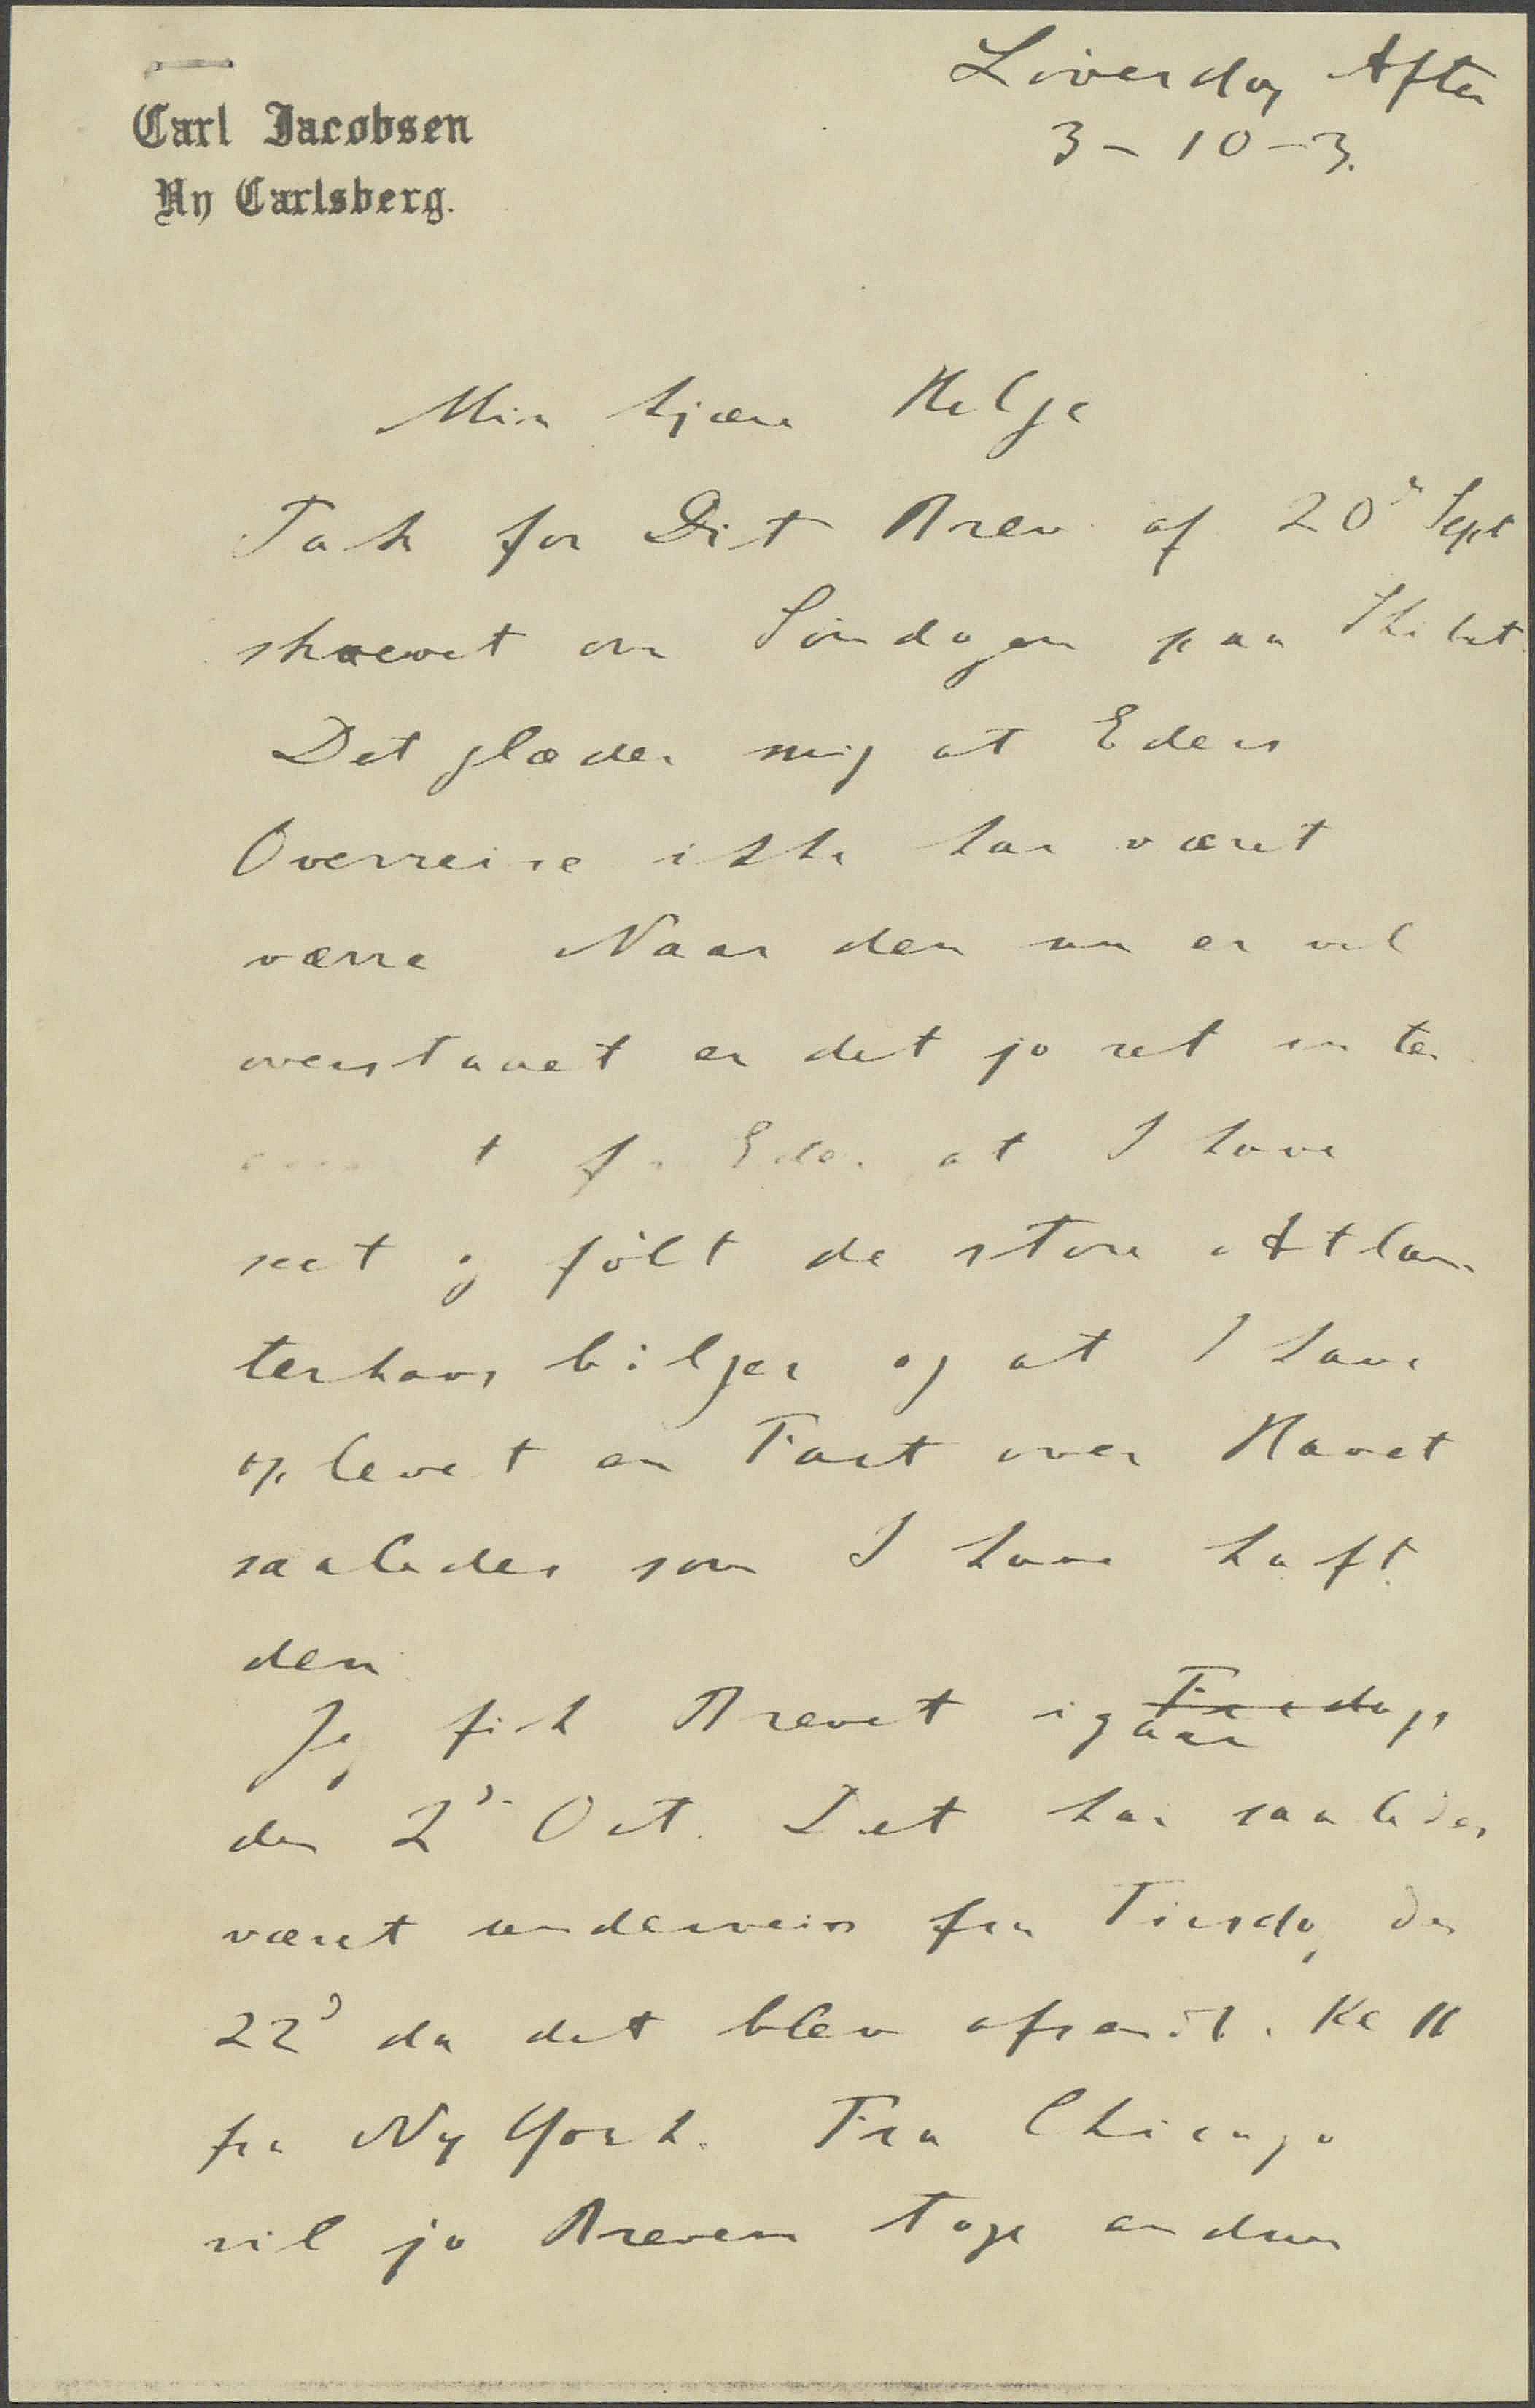 Carl Jacobsen
Ny Carlsberg.
Löverdag Aften
3-10-3.
Min kjære Helge
Tak for Dit Brev af 20de Sept
skrevet om Söndagen paa Skibet.
Det glæder mig at Eders
Overreise ikke har været
værre Naar den nu er vel
overstaaet er det jo ret inte
t for Eder at I have
seet og fölt de store Atlan
terhavs bölger og at I have
oplevet en Fart over Havet
saaledes som I have haft
den
Jeg fik Brevet igaar
den 2den Oct. Det har saaledes
været underveis fra Tirsdag den
22de da det blev afsendt. Kl 11
fra Ny York. Fra Chicago
vil jo Breven tage endnu